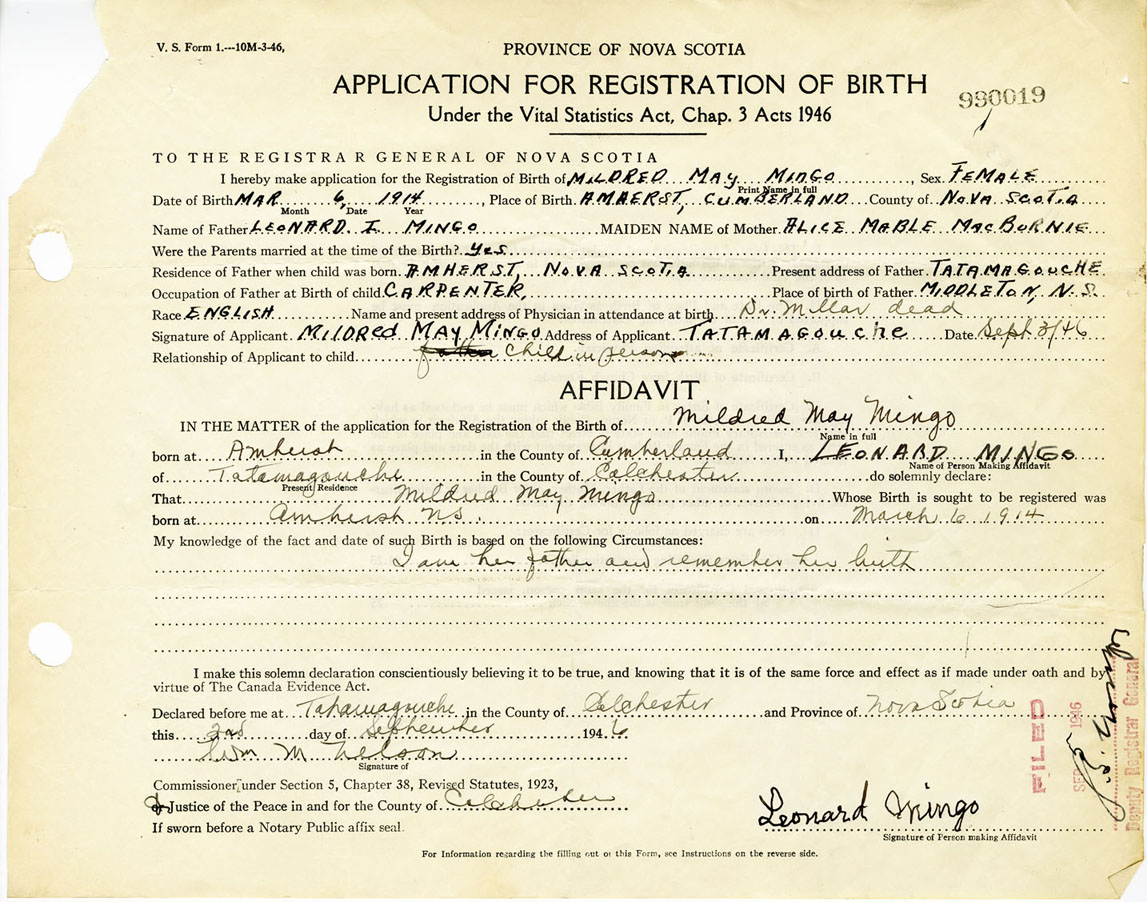 V. S. Form 1.---10M-3-46,
PROVINCE OF NOVA SCOTIA
APPLICATION FOR REGISTRATION OF BIRTH
Under the Vital Statistics Act, Chap. 3 Acts 1946
990019
TO THE REGISTRAR GENERAL OF NOVA SCOTIA
I hereby make application for the Registration of Birth of MILDRED MAY MINGO, Sex. FEMALE
Print Name in full
Date of Birth MAR 6, 1914, Place of Birth. AMHERST, CUMBERLAND County of NOVA SCOTIA
Month Date Year
Name of Father LEONARD I. MINGO MAIDEN NAME of Mother. ALICE MABLE MACBURNIE
Were the Parents married at the time of the Birth? Yes
Residence of Father when child was born. AMHERST, NOVA SCOTIA Present address of Father TATAMAGOUCHE
Occupation of Father at Birth of child CARPENTER, Place of birth of Father MIDDLETON, N.S.
Race ENGLISH Name and present address of Physician in attendance at birth Dr. Millar dead
Signature of Applicant. MILDRED MAY MINGO Address of Applicant TATAMAGOUCHE Date Sept 3/46
Relationship of Applicant to child Child in person
AFFIDAVIT
IN THE MATTER of the application for the Registration of the Birth of Mildred May Mingo
Name in full
born at Amherst in the County of Cumberland I, LEONARD MINGO
Name of Person Making Affidavit
of Tatamagouche in the County of Colchester do solemnly declare:
Present Residence
That Mildred May Mingo Whose Birth is sought to be registered was
born at Amherst NS. on March 6 1914
My knowledge of the fact and date of such Birth is based on the following Circumstances:
I am her father and remember her birth
I make this solemn declaration conscientiously believing it to be true, and knowing that it is of the same force and effect as if made under oath and by
virtue of The Canada Evidence Act.
Declared before me at Tatamagouche in the County of Colchester and Province of Nova Scotia
this 3rd day of September 1946
Wm M Nelson
Signature of
Commissioner under Section 5, Chapter 38, Revised Statutes, 1923,
Justice of the Peace in and for the County of Colchester
If sworn before a Notary Public affix seal.
Leonard Mingo
Signature of Person making Affidavit
FILED
SEP 1946
Deputy Registrar General
For Information regarding the filling out of this Form, see Instructions on the reverse side.